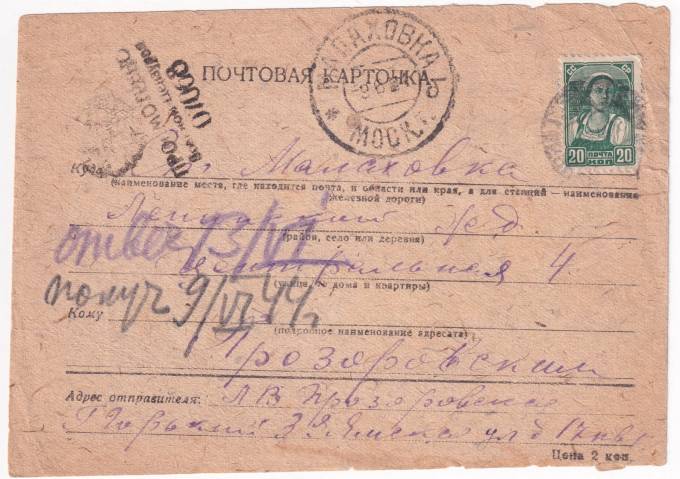 ПОЧТОВАЯ КАРТОЧКА
МАЛАХОВКА
МОСК.
ПРОСМОТРЕНО
Военной Цензурой
07068
СС СР
20 ПОЧТА 20
КОП.
Куда Малаховка
(наименование места, где находится почта, и области или края, а для станций — наименование
железной дороги)
Ленинской ж д
(район, село или деревня)
ответ 13/VI
Центральная 4
(улица, № дома и квартиры)
получ 9/VI 44г
Кому
(подробное наименование адресата)
Прозоровским
Адрес отправителя: Л В Прозоровская
Горький 3 Я Ямская ул д 17 кв 1
Цена 2 коп.